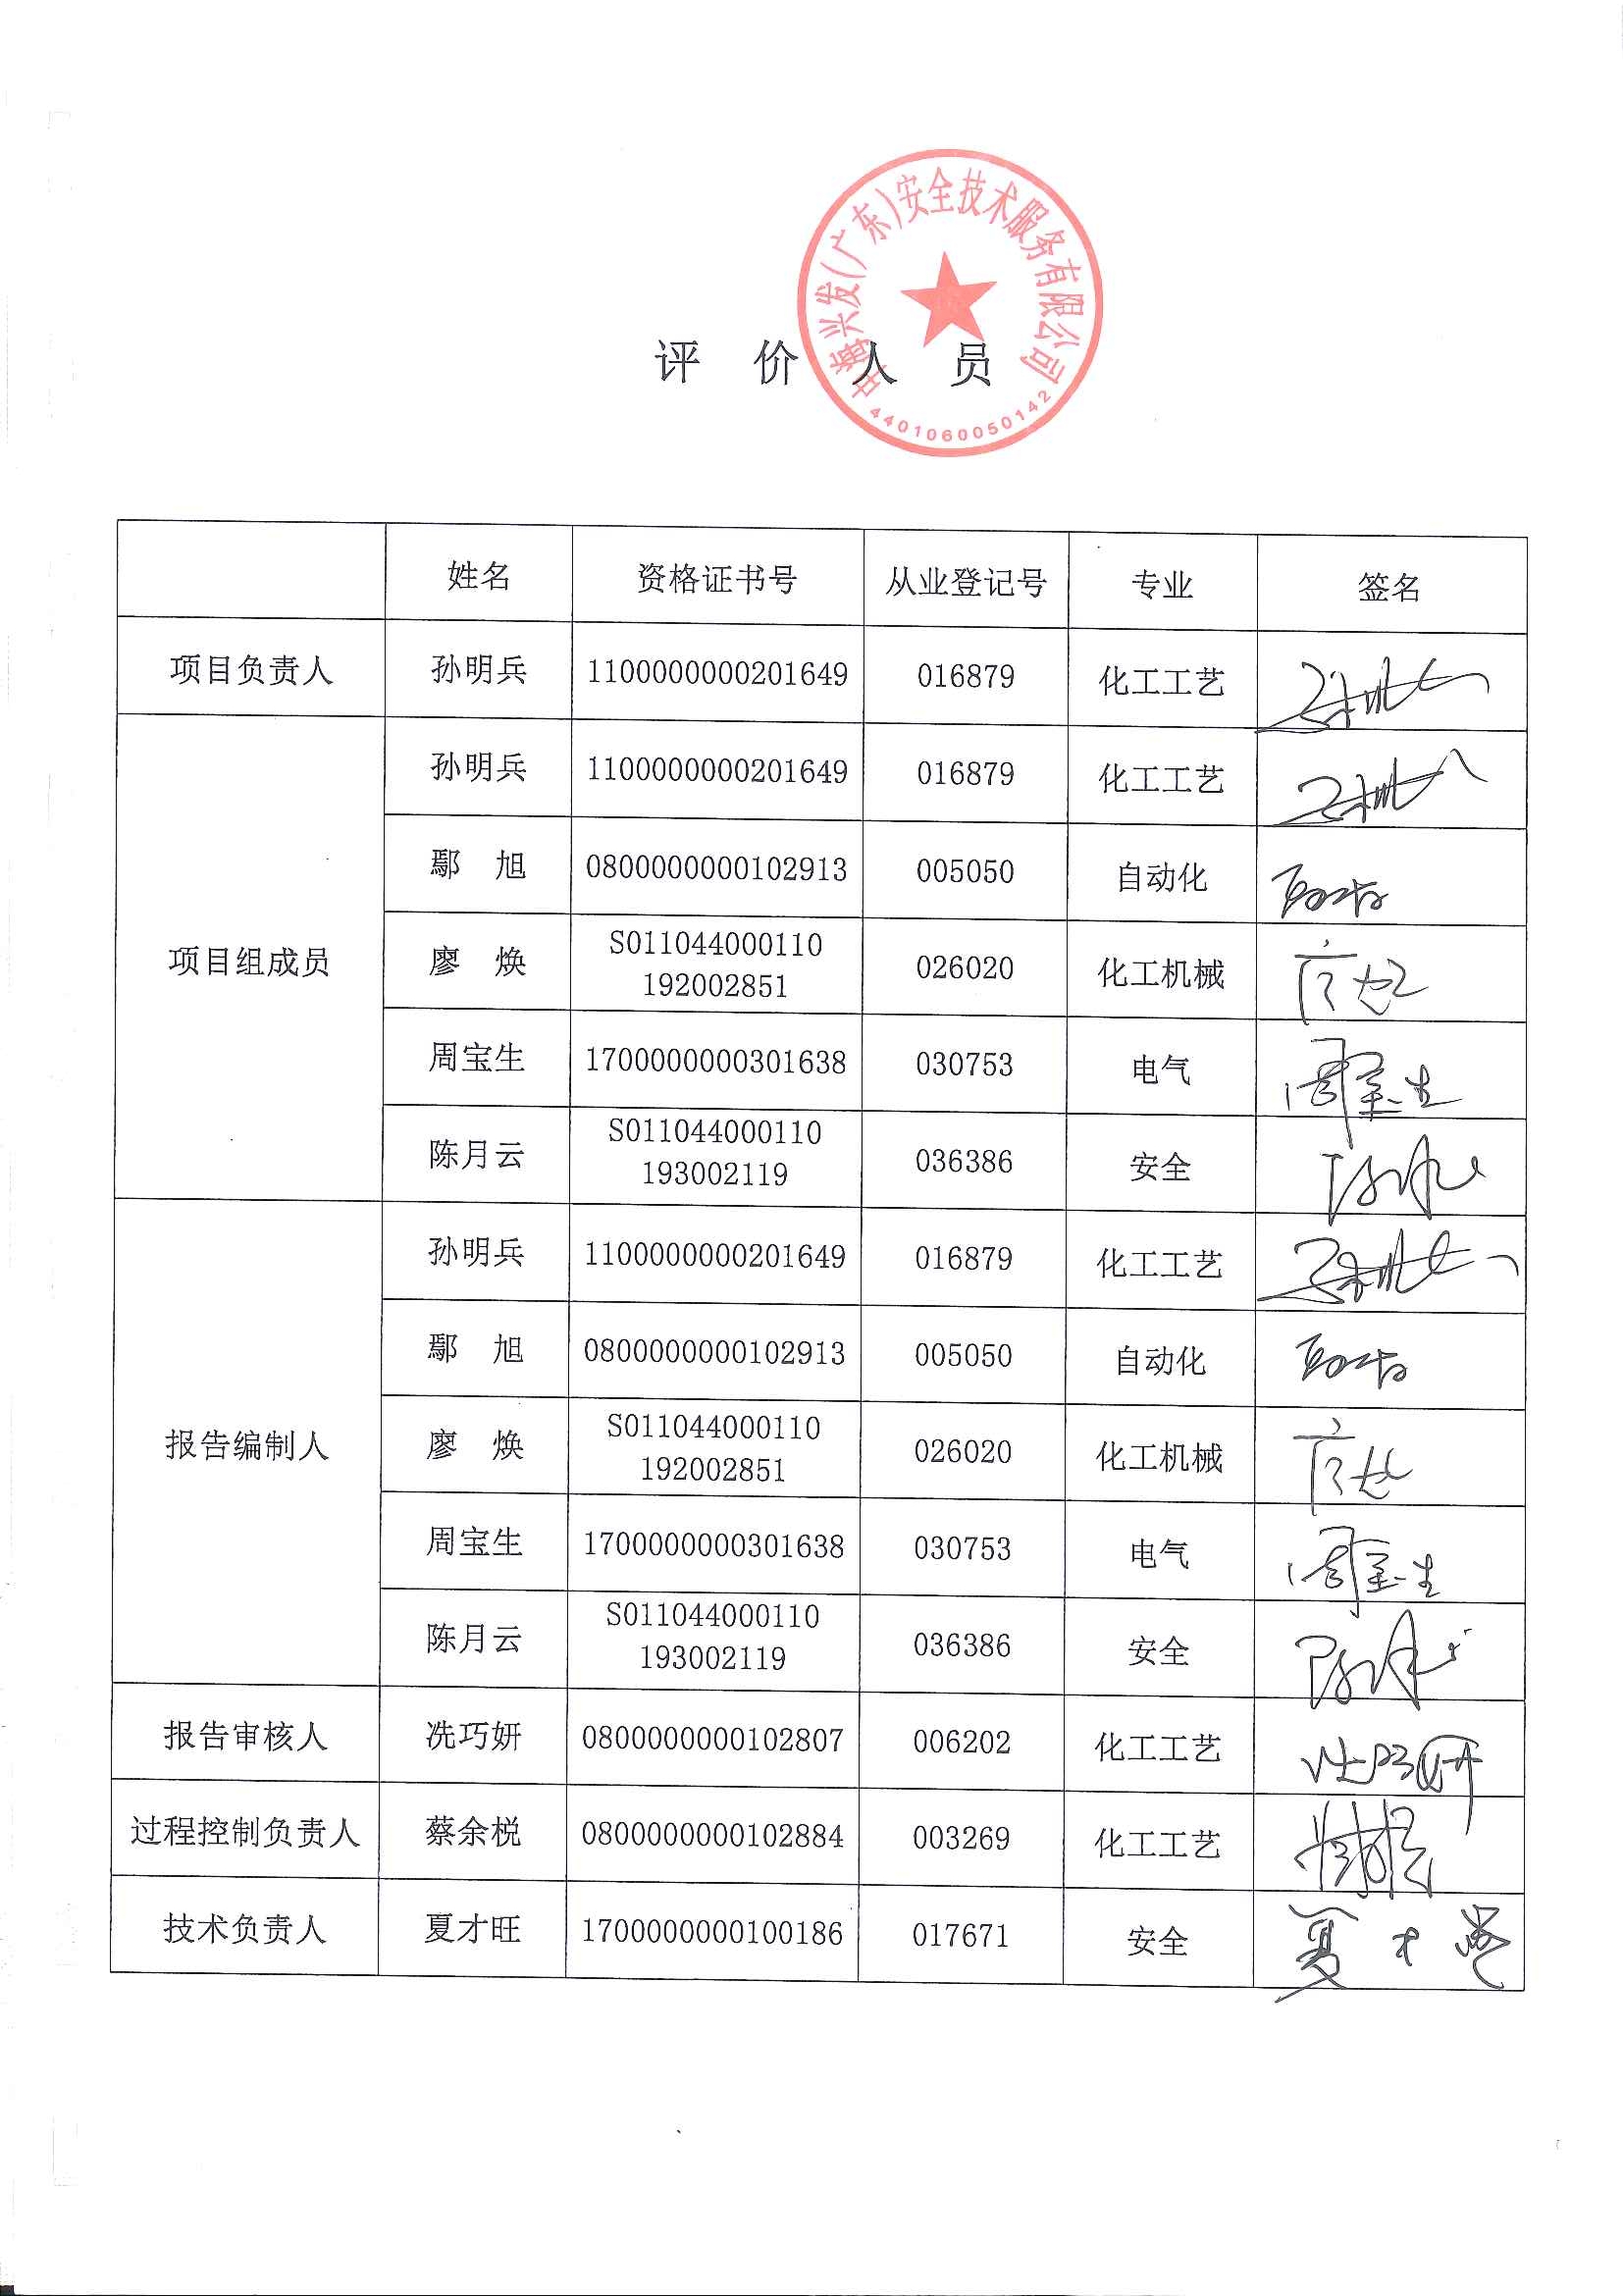 中海兴发(广东)安全技术服务有限公司
4401060050142
评价人员
姓名 资格证书号 从业登记号 专业 签名
项目负责人 孙明兵 1100000000201649 016879 化工工艺
项目组成员
孙明兵 1100000000201649 016879 化工工艺
鄢 旭 0800000000102913 005050 自动化
廖 焕 S011044000110
192002851 026020 化工机械
周宝生 1700000000301638 030753 电气 周宝生
陈月云 S011044000110
193002119 036386 安全
报告编制人
孙明兵 1100000000201649 016879 化工工艺
鄢 旭 0800000000102913 005050 自动化
廖 焕 S011044000110
192002851 026020 化工机械
周宝生 1700000000301638 030753 电气 周宝生
陈月云 S011044000110
193002119 036386 安全
报告审核人 冼巧妍 0800000000102807 006202 化工工艺
过程控制负责人 蔡余棁 0800000000102884 003269 化工工艺
技术负责人 夏才旺 1700000000100186 017671 安全 夏才旺